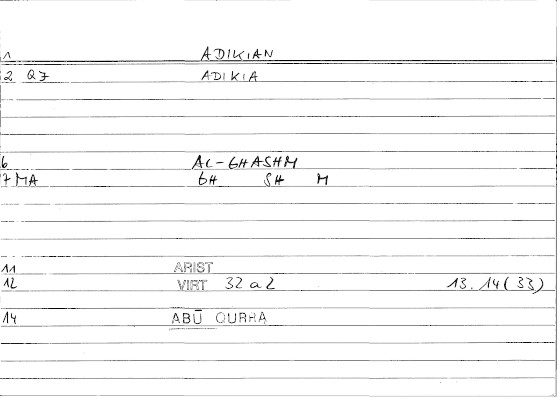 1 ADIKIAN
2 Q7 ADIKIA
6 AL-GHASHM
7 MA GH SH M
11 ARIST
12 VIRT 32 a 2 13.14(33)
14 ABŪ QURRA